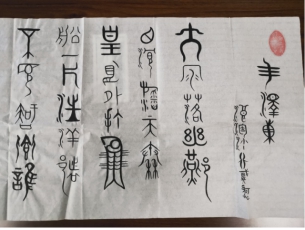 毛澤東
浪淘沙北戴河
大雨落幽燕
白浪滔天秦
皇島外打魚
船一片汪洋都
不見知向誰